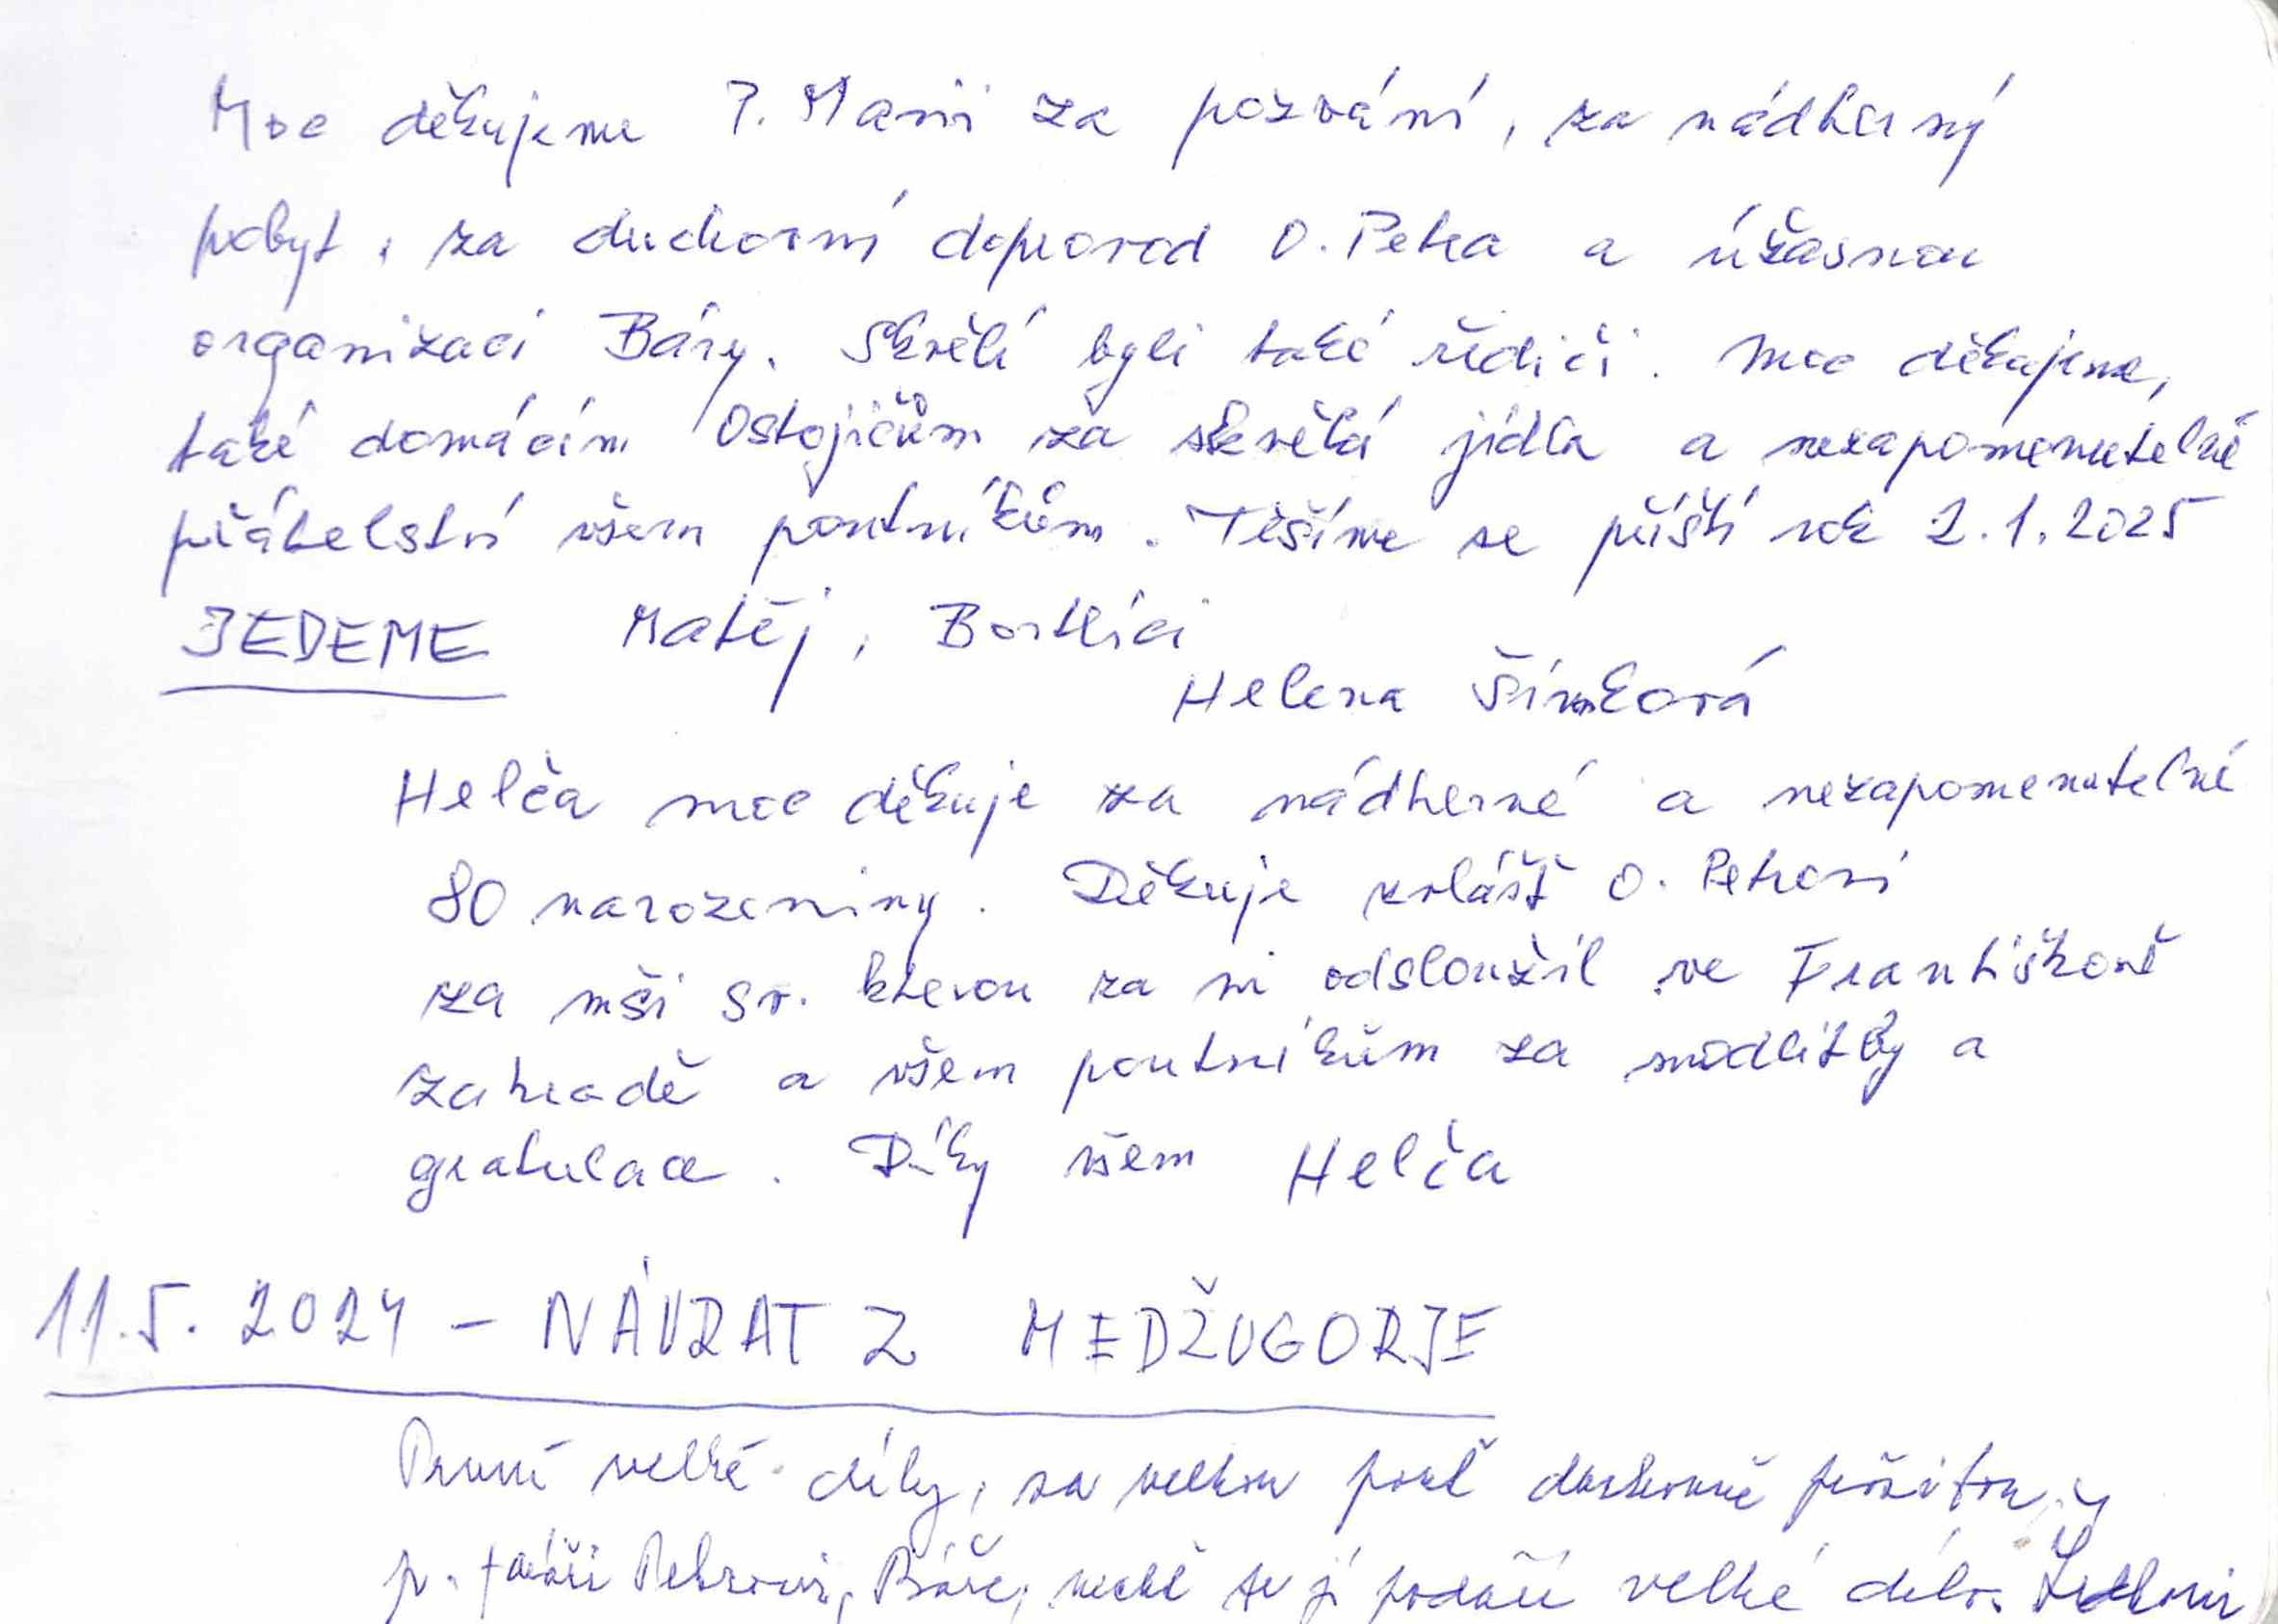 Moc děkujeme P. Marii za pozvání, za nádherný
pobyt, za duchovní doprovod O. Petra a úžasnou
organizaci Báry. Skvělí byli také řidiči. Moc děkujeme,
také domácím Ostojičům za skvělá jídla a nezapomenutelné
přátelství všem poutníkům. Těšíme se příští rok 2.1.2025
JEDEME Matěj, Bortlíci
Helena Šimková
Helča moc děkuje za nádherné a nezapomenutelné
80 narozeniny. Děkuje zvlášť O. Petrovi
za mši sv. kterou za mi odsloužil ve Františkově
zahradě a všem poutníkům za modlitby a
gratulace. Díky všem Helča
11.5. 2024 - NÁVRAT Z MEDŽUGORJE
První velké díky, za velkou pouť duchovně prožitou,
p. faráři Petrovi, Báře, nechť se jí podaří velké dílo.